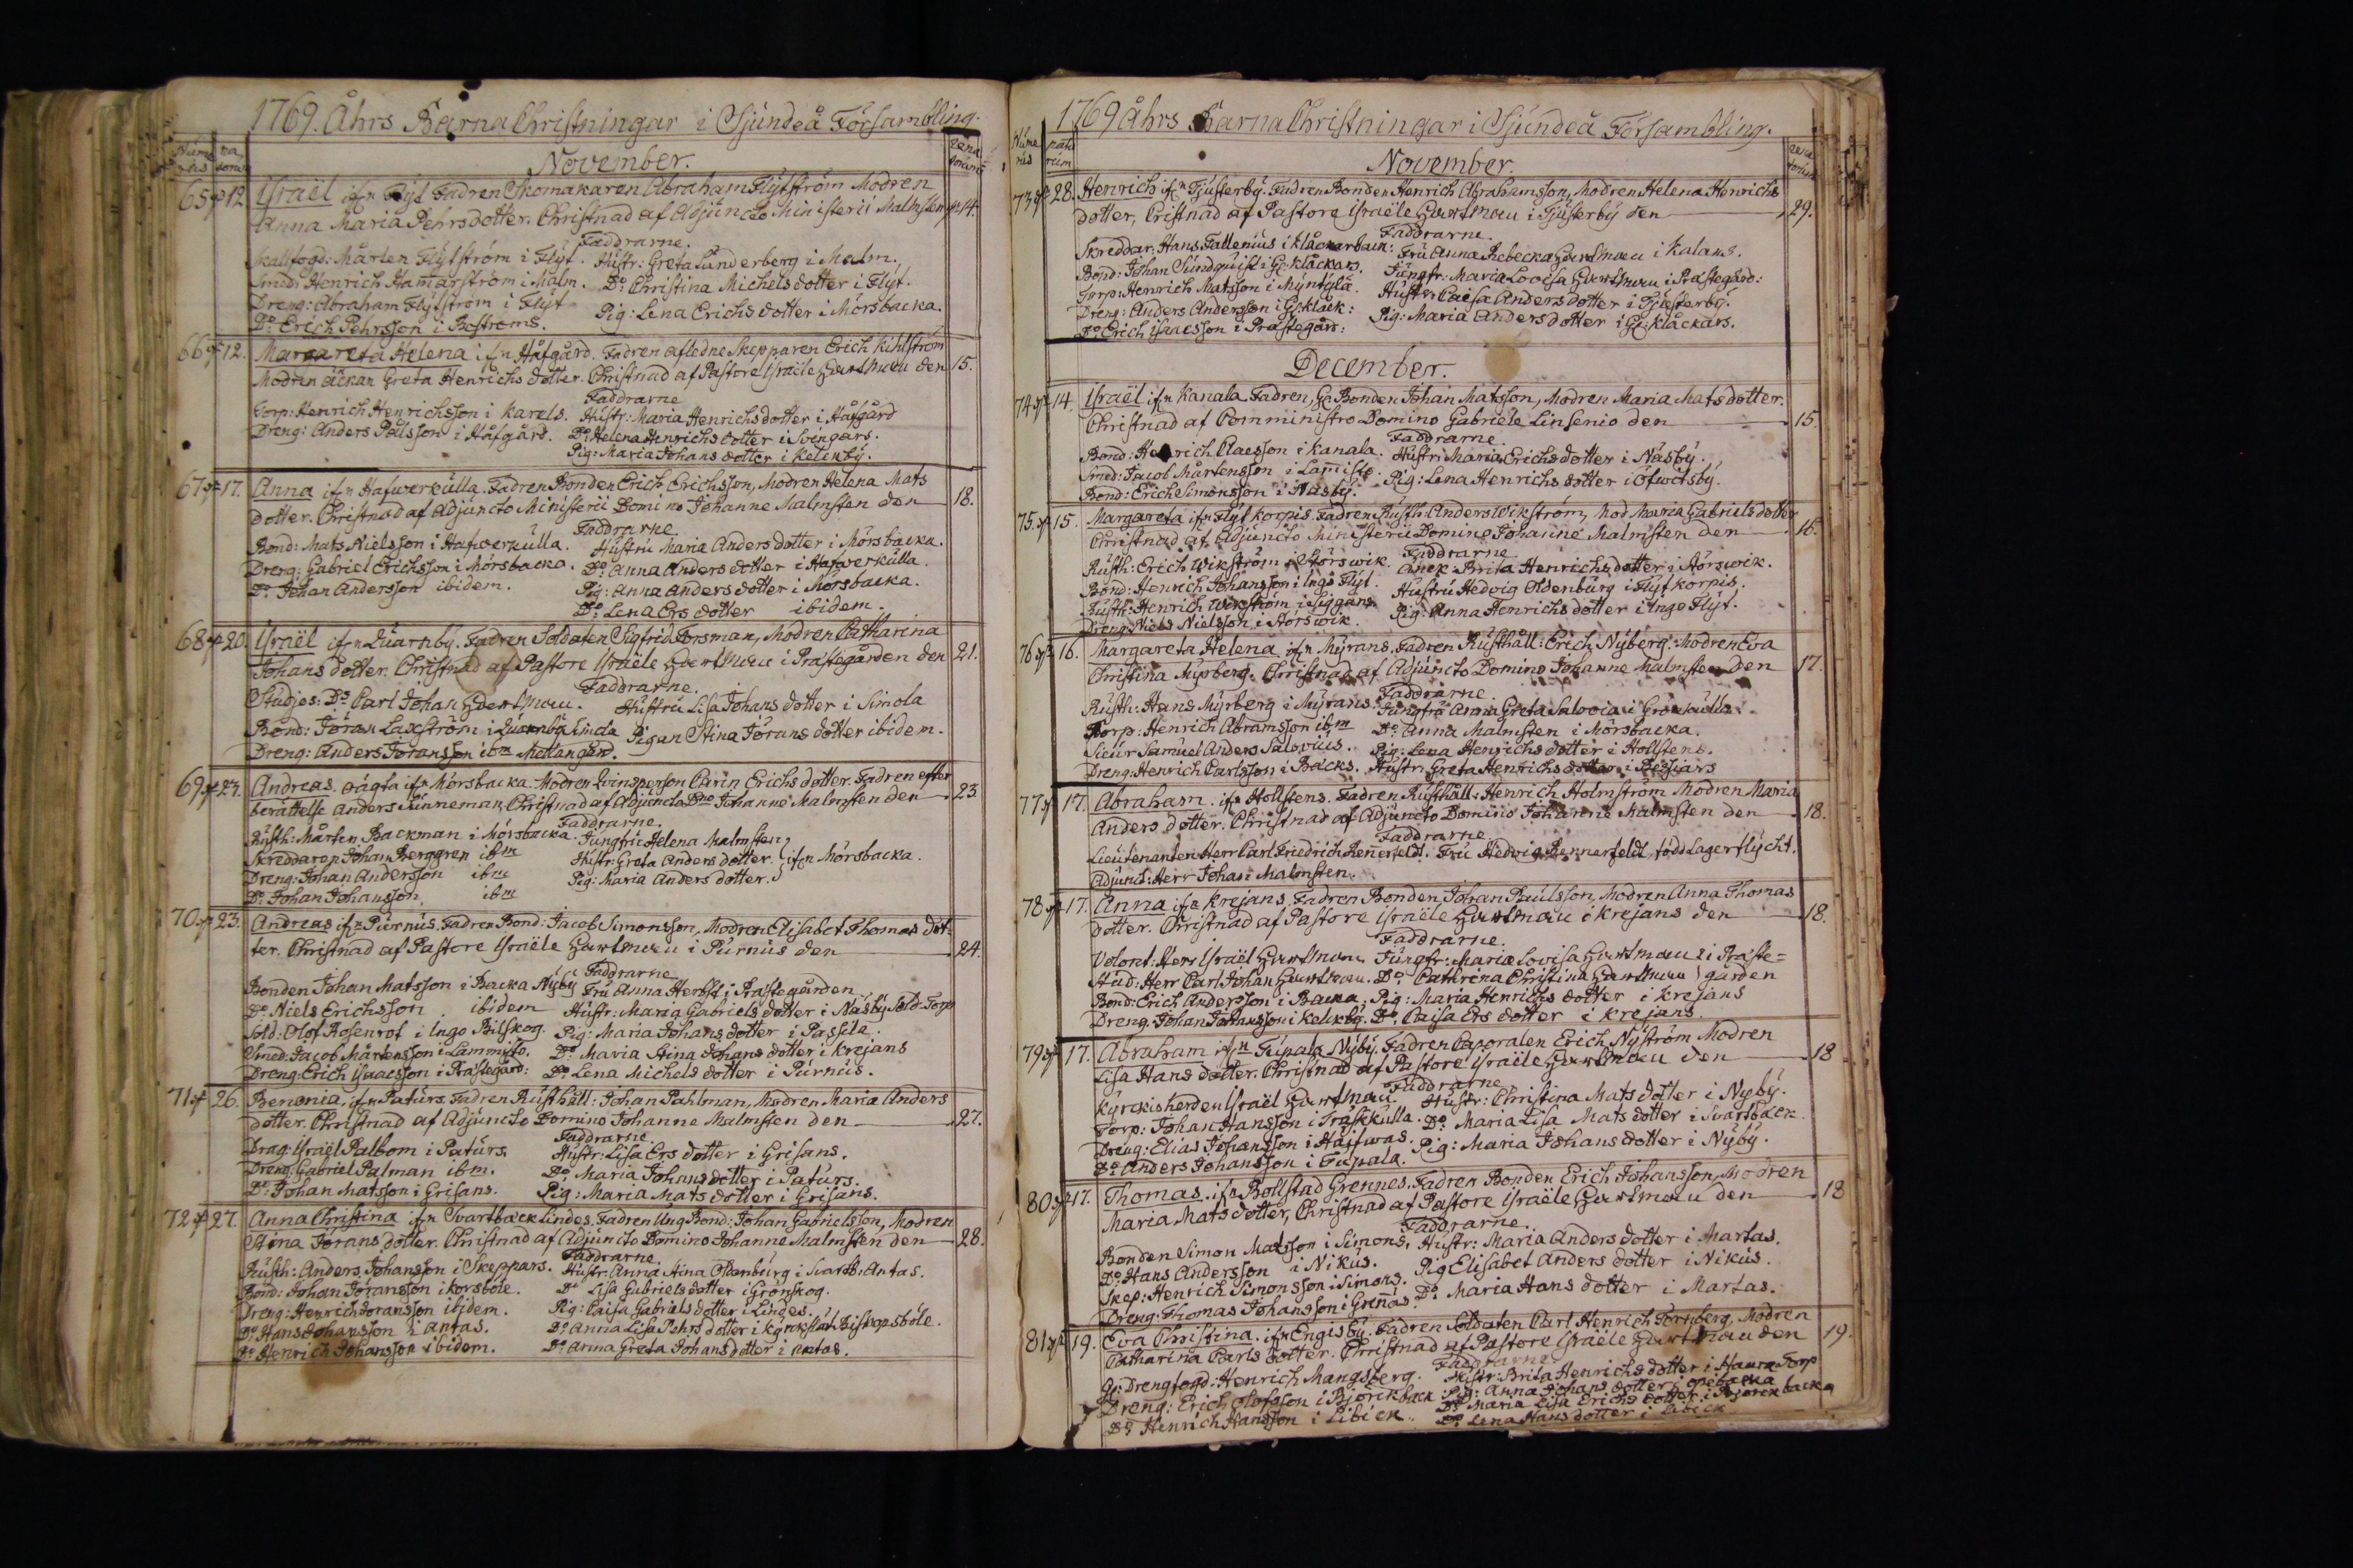 1769. Åhrs Barna Christningar i Sjundeå Försambling.
November.
65 12 Israël ifrn Flyt Fadren Skomakaren Abraham Flytström Modren
Anna Maria Pehrsdotter. Christnad af Adjuncto Ministerii Malmsten 14.
Faddrarne.
Skallfogd: Mårten Flytström i Flyt. Hustr: Greta Sunderberg i Malm.
Smed: Henrich Hamarström i Malm. Do Christina Michelsdotter i Flyt.
Dreng: Abraham Flytström i Flyt Pig: Lena Erichsdotter i Mörsbacka.
Do Erich Pehrsson i Boströms.
66 12. Margareta Helena ifrn Håfgård. Fadren afledne Skepparen Erich Kihlström
Modren Äckan Greta Henrichsdotter. Christnad af Pastore Israële Hartman den 15.
Faddrarne
Torp: Henrich Henrichsson i Karels. Hustr: Maria Henrichsdotter i Håfgård
Dreng: Anders Pålsson i Håfgård. Do Helena Henrichsdotter i Svingars.
Pig: Maria Johansdotter i Kelikby.
67 17. Anna ifrn Hafwerkulla. Fadren Bonden Erich Erichsson, Modren Helena Mats
dotter. Christnad af Adjuncto Ministerii Domino Johanne Malmsten den 18.
Faddrarne
Bond: Mats Nielsson i Hafwerkulla. Hustru Maria Andersdotter i Mörsbacka.
Dreng: Gabriel Erichsson i Mörsbacka. Do Anna Andersdotter i Hafwerkulla.
Do Johan Andersson ibidem. Pig: Anna Andersdotter i Mörsbacka.
Do Lena Ersdotter ibidem.
68 20. Israël ifrn Quarnby. Fadren Soldaten Sigfrid Forsman, Modren Catharina
Johansdotter. Christnad af Pastore Israële Hartman i Prästegården den 21.
Faddrarne.
Studjos: Do Carl Johan Hartman. Hustru Lisa Johansdotter i Simola
Bond: Jöran Laxström i Quarnby Pigan Stina Jöransdotter ibidem.
Dreng: Anders Jöransson ibm
69 23. Andreas, oägta ifrn Mörsbacka Modren Qvinsperson Carin Erichsdotter. Fadren efter
berättelse Anders Sinneman, Christnad af Adjuncto Dno Johanne Malmsten den 23.
Faddrarne.
Rusth: Mårten Backman i Mörsbacka. Jungfru Helena Malmsten
Skreddaren Johan Berggren ibm Hustr: Greta Andersdotter. ifrn Mörsbacka.
Dreng: Johan Andersson ibm Pig: Maria Andersdotter.
Do Johan Johansson, ibm
70. 23. Andreas ifrn Purnus. Fadren Bond: Jacob Simonsson, Modren Elisabet Thomas dot-
ter. Christnad af Pastore Israële Hartman i Purnus den 24.
Faddrarne
Bonden Johan Matsson i Backa Nyby Fru Anna Herbst i Prästegården
Do Niels Erichsson ibidem Hustr: Maria Gabrielsdotter i Näsby Sold-Torp
Sold: Olof Rosenrot i Ingo Bilskog. Pig: Maria Johansdotter i Passila.
Smed: Jacob Mårtensson i Lammisto. Do Maria Stina Johansdotter i Krejans
Dreng: Erich Isacsson i Prästegård: Do Lena Michelsdotter i Purnus.
71 26. Benonia, ifrn Paturs. Fadren Rusthåll: Johan Pahlman, Modren Maria Anders
dotter. Christnad af Adjuncto Domino Johanne Malmsten den 27.
Faddrarne.
Drag: Israël Palbom i Paturs. Hustr: Lisa Ersdotter i Grisans.
Dreng: Gabriel Palman ibm. Do Maria Johansdotter i Paturs.
Do Johan Matsson i Grisans. Pig: Maria Matsdotter i Grisans.
72 27. Anna Christina ifrn Svartback Lindes. Fadren Ung Bond: Johan Gabrielsson, Modren
Stina Jöransdotter. Christnad af Adjuncto Domino Johanne Malmsten den 28.
Faddrarne
Rusth: Anders Johansson i Skeppars. Hustr: Anna Stina Oldenburg i Svartb: Antas.
Bond: Johan Jöransson i Korsbole. Do Lisa Gabrielsdotter i Grönskog.
Dreng: Henrich Jöransson ibidem. Pig: Caisa Gabrielsdotter i Lindes.
Do Hans Johansson i Antas. Do Anna Lisa Pehrsdotter i Kyrckslät Biskopsböle.
Do Henrich Johansson ibidem. Do Anna Greta Johansdotter i Antas.
1769 Åhrs Barna Christningar i Sjundeå Försambling.
November.
73 28. Henrich ifrn Tjusterby. Fadren Bonden Henrich Abrahamsson, Modren Helena Henrichs
dotter, Cristnad af Pastore Israële Hartman i Tjusterby den 29.
Faddrarne.
Skreddar: Hans Fallenius i Klåckarback: Fru Anna Rebecka Hartman i Kalans.
Bond: Johan Sundquist i Gl: Klåckars. Jungfr: Maria Lovisa Hartman i Prästegård:
Torp: Henrich Matsson i Myntylä. Hustr: Caisa Andersdotter i Tjusterby.
Dreng: Anders Andersson i Gl: Klåck: Pig: Maria Andersdotter i Gl: Klåckars.
Do Erich Isaacsson i Prästegård:
December.
74 14. Israël ifrn Kanala Fadren, Gl: Bonden Johan Matsson, Modren Maria Matsdotter.
Christnad af Comministro Domino Gabriele Linsenio den 15.
Faddrarne.
Bond: Henrich Claesson i Kanala. Hustr: Maria Erichsdotter i Näsby.
Smed: Jacob Mårtensson i Lamisto. Pig: Lena Henrichsdotter i Öfwitsby.
Bond: Erich Simonsson i Näsby.
75. 15. Margareta ifrn Flyt Korpis. Fadren Rusth: Anders Wikström, Mod Maria Gabrielsdotter
Christnad af Adjuncto Ministerii Domino Johanne Malmsten den 16.
Faddrarne
Rusth: Erich Wikström i Störswik. Änck: Brita Henrichsdotter i Störswik.
Bond: Henrich Johansson i Ingo Flyt. Hustru Hedvig Oldenburg i Flyt Korpis.
Rusth: Henrich Wikström i Siggans Pig: Anna Henrichsdotter i Ingo Flyt.
Dreng: Niels Nielsson i Störswik.
76 16. Margareta Helena ifrn Myrans. Fadren Rusthåll: Erich Nyberg. Modren Eva
Christina Myrberg. Christnad af Adjuncto Domino Johanne Malmsten den 17.
Faddrarne.
Rusth: Hans Myrberg i Myrans. Jungfru Anna Greta Salovia i Gröukulla.
Torp: Henrich Abramsson ibm Do Anna Malmsten i Mörsbacka.
Sieur Samuel Anders Salovius. Pig: Lena Henrichsdotter i Hollstens.
Dreng: Henrich Carlsson i Bäcks. Hustr: Greta Henrichsdotter i
77 17. Abraham ifrn Hollstens. Fadren Rusthåll: Henrich Holmström Modren Maria
Andersdotter. Christnad af Adjuncto Domino Johanne Malmsten den 18.
Faddrarne
Lieutenanten Herr Carl Friedrich Rennerfeldt. Fru Hedvig Rennerfeldt, född Lagerflycht.
Adjunct: Herr Johan Malmsten.
78 17. Anna ifrn Krejans. Fadren Bonden Johan Paulsson, Modren Anna Thomas
dotter. Christnad af Pastore Israële Hartman i Krejans den 18.
Faddrarne.
Volont: Herr Israël Hartman Jungfr: Maria Lovisa Hartman i Präste=
Stud: Herr Carl Johan Hartman. Do Cathrina Christina Hartman gården
Bond: Erich Andersson i Backa. Pig: Maria Henrichsdotter i Krejans
Dreng: Johan Johansson i Kelikby. Do Caisa Ersdotter i Krejans.
79 17. Abraham ifrn Tupala Nyby. Fadren Caporalen Erich Nyström Modren
Lisa Hansdotter. Christnad af Pastore Israële Hartman den 18
Faddrarne
Kyrckioherden Israël Hartman. Hustr: Christina Matsdotter i Nyby.
Torp: Johan Hansson i Träskkulla. Do Maria Lisa Matsdotter i Svartback.
Dreng: Elias Johansson i Häifwas. Pig: Maria Johansdotter i Nyby.
Do Anders Johansson i Tupala.
80 17. Thomas. ifrn Bollstad Grennes. Fadren Bonden Erich Johansson, Modren
Maria Matsdotter, Christnad af Pastore Israële Hartman den 18
Faddrarne.
Bonden Simon Matsson i Simons. Hustr: Maria Andersdotter i Martas.
Do Hans Andersson i Nikus. Pig Elisabet Andersdotter i Nikus.
Skep: Henrich Simonsson i Simons. Do Maria Hansdotter i Martas.
Dreng: Thomas Johansson i Grennäs.
81 19. Eva Christina. ifrn Engisby. Fadren Soldaten Carl Henrich Törnberg, Modren
Catharina Carlsdotter. Christnad af Pastore Israële Hartman den 19.
Faddrarne
Gl: Drengfogd: Henrich Mangsberg. Hustr: Brita Henrichsdotter i Torp
Dreng: Erich Olofsson i Björckback Pig: Anna Johansdotter i
Do Henrich Hansson i Libeck. Do Maria Lisa Erichsdotter i Björckbacka
Do Lena Hansdotter i Libeck